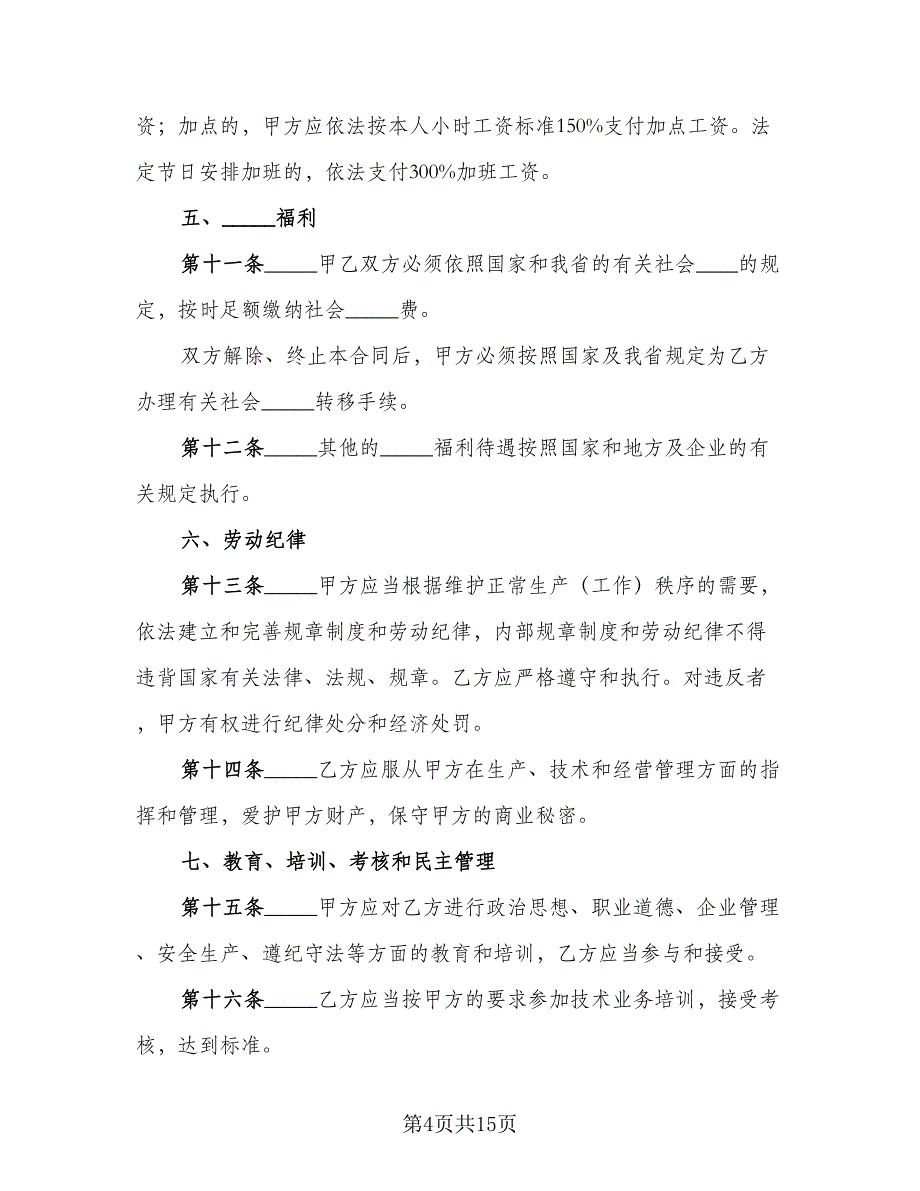 资；加点的，甲方应依法按本人小时工资标准150%支付加点工资。法
定节日安排加班的，依法支付300%加班工资。
五、_____福利
第十一条_____甲乙双方必须依照国家和我省的有关社会____的规
定，按时足额缴纳社会_____费。
双方解除、终止本合同后，甲方必须按照国家及我省规定为乙方
办理有关社会_____转移手续。
第十二条_____其他的_____福利待遇按照国家和地方及企业的有
关规定执行。
六、劳动纪律
第十三条_____甲方应当根据维护正常生产（工作）秩序的需要，
依法建立和完善规章制度和劳动纪律，内部规章制度和劳动纪律不得
违背国家有关法律、法规、规章。乙方应严格遵守和执行。对违反者
，甲方有权进行纪律处分和经济处罚。
第十四条_____乙方应服从甲方在生产、技术和经营管理方面的指
挥和管理，爱护甲方财产，保守甲方的商业秘密。
七、教育、培训、考核和民主管理
第十五条_____甲方应对乙方进行政治思想、职业道德、企业管理
、安全生产、遵纪守法等方面的教育和培训，乙方应当参与和接受。
第十六条_____乙方应当按甲方的要求参加技术业务培训，接受考
核，达到标准。
第4页共15页